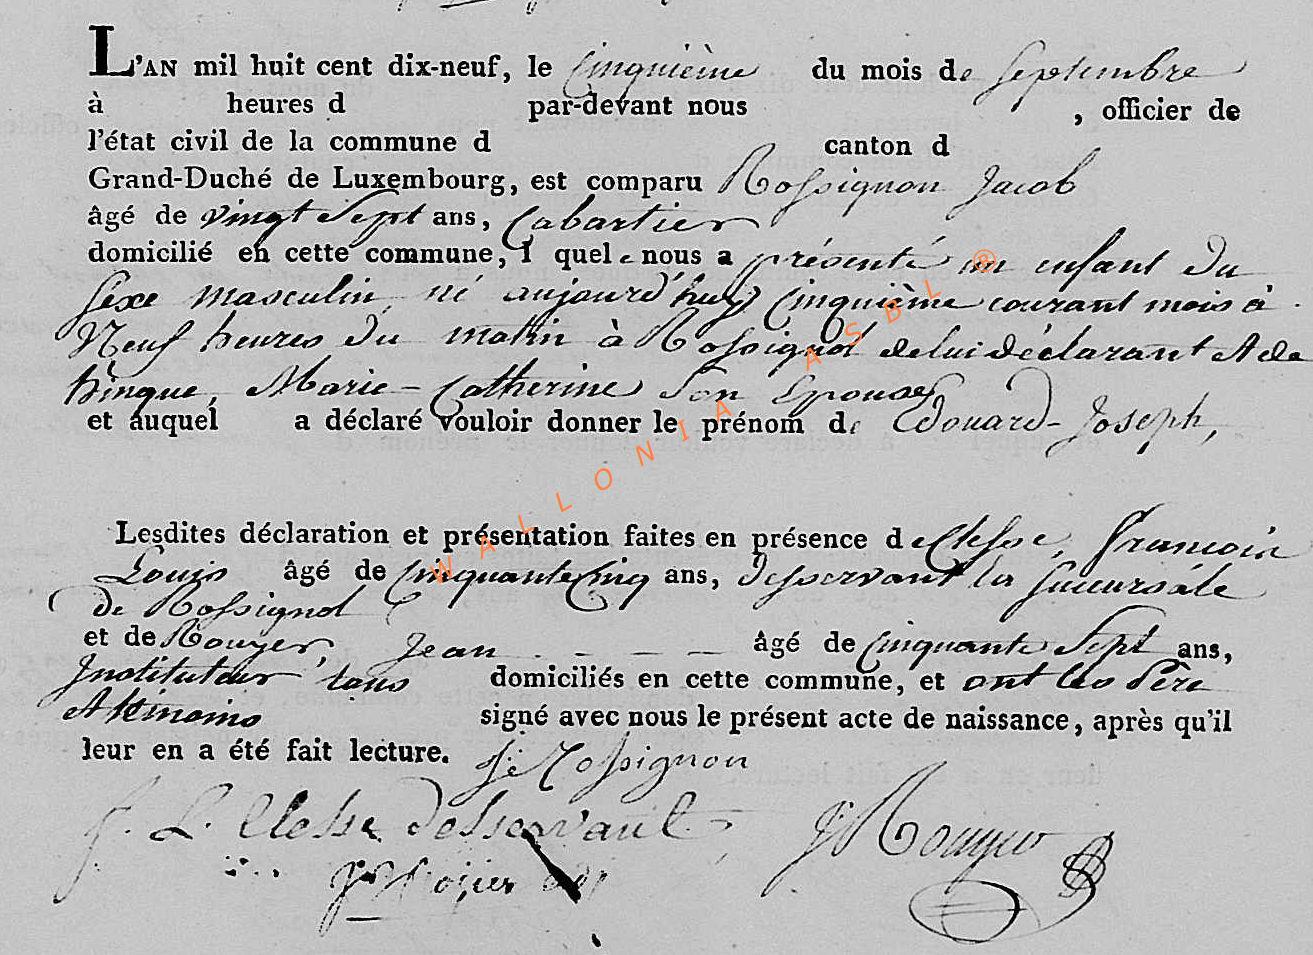 L'AN mil huit cent dix-neuf, le Cinquième du mois de Septembre
à heures d par-devant nous , officier de
l'état civil de la commune d canton d
Grand-Duché de Luxembourg, est comparu Rossignon Jacob
âgé de vingt Sept ans, Cabartier
domicilié en cette commune, l quel e nous a présenté un enfant du
sexe masculin, né aujourd'huy Cinquième courant mois à
Neuf heures du matin à Rossignol de lui déclarant & de
hinque, Marie-Catherine Son Epouse
et auquel a déclaré vouloir donner le prénom de Edouard-Joseph,
Lesdites déclaration et présentation faites en présence de Clesse, Francois
Louis âgé de Cinquante Cinq ans, desservant la succursale
de Rossignol
et de Rouyer, Jean - - - - âgé de Cinquante Sept ans,
Instituteur tous domiciliés en cette commune, et ont les Père
& témoins signé avec nous le présent acte de naissance, après qu'il
leur en a été fait lecture. J: Rossignon
f. L. Clesse desservant J Rouyer
WALLONIA ASBL ®